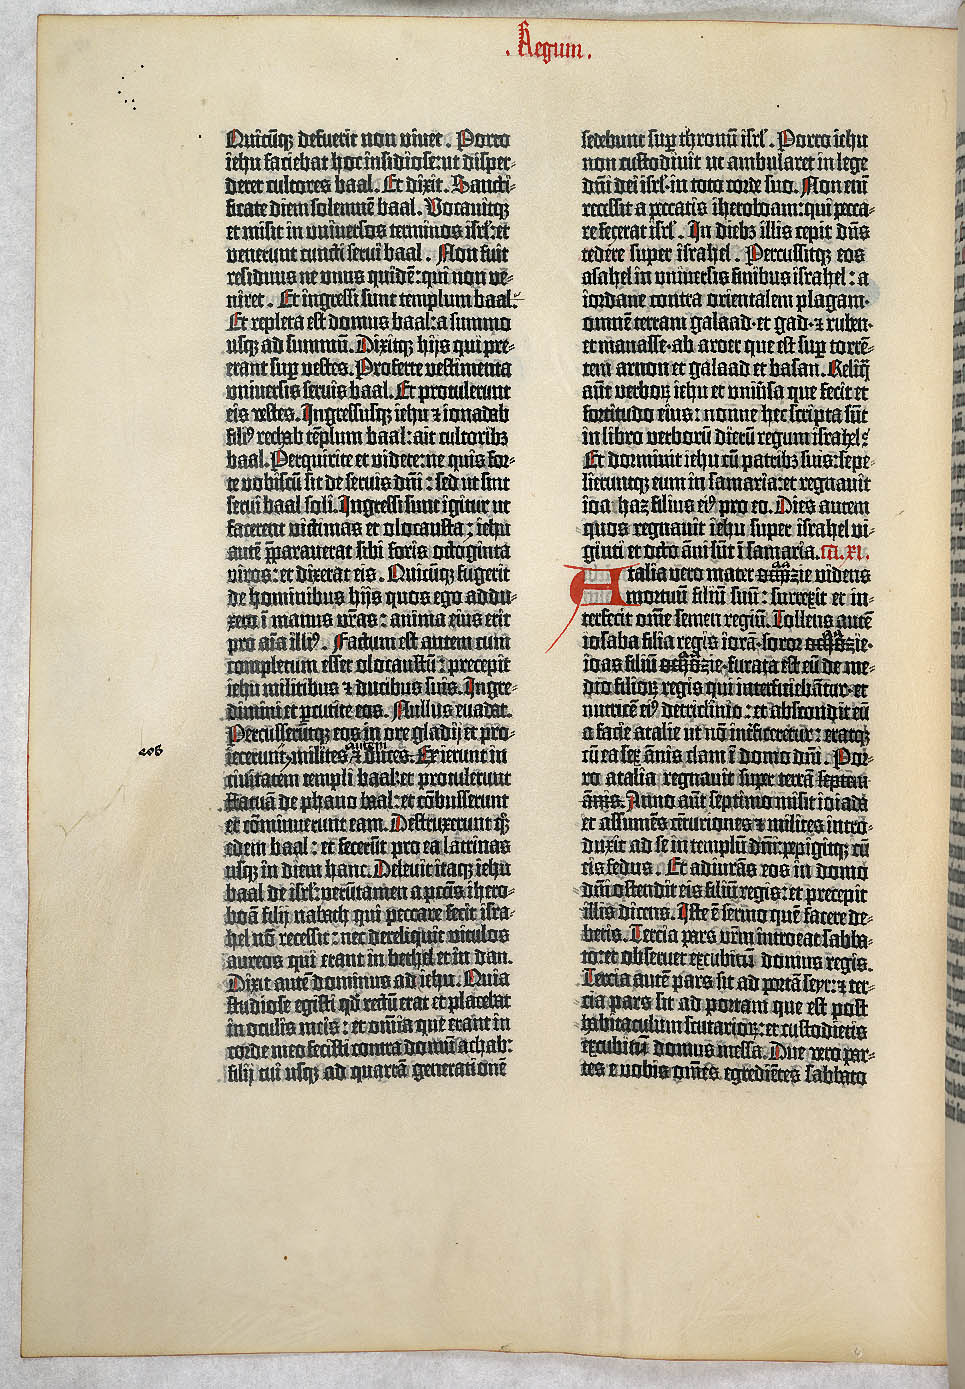 Regum.
Quicūq; defuerit non vivet. Porro
iehu faciebat hoc insidiose: ut disper-
deret cultores baal. Et dixit. Sancti-
ficate diem solennē baal. Vocavitq;
et misit in universos terminos isrl': et
venerunt cuncti servi baal. Non fuit
residuus ne unus quidē: qui non ve-
niret. Et ingressi sunt templum baal:
Et repleta est domus baal: a summo
usq; ad summū. Dixitq; hijs qui pre-
erant sup vestes. Proferte vestimenta
universis servis baal. Et protulerunt
eis vestes. Ingressusq; iehu ⁊ ionadab
filiꝰ rechab tēplum baal: ait cultorib;
baal. Perquirite et videte: ne quis for-
te vobiscū sit de servis dn̄i: sed ut sint
servi baal soli. Ingressi sunt igitur ut
facerent victimas et olocausta: iehu
autē p̄paraverat sibi foris octoginta
viros: et dixerat eis. Quicūq; fugerit
de hominibus hijs quos ego addu-
xero ī manus vr̄as: anima eius erit
pro aīa illiꝰ. Factum est autem cum
completum esset olocaustū: precepit
iehu militibus ⁊ ducibus suis. Ingre-
dimini et pcutite eos. Nullus evadat.
Percusserūtq; eos in ore gladij et pro-
autem
eos
iecerunt; milites ⁊ duces. Et ierunt in
civitatem templi baal: et protulerunt
statuā de phano baal: et cōbusserunt
et cōminuerunt eam. Destruxerunt q̄;
edem baal: et fecerūt pro ea latrinas
usq; in diem hanc. Delevit itaq; iehu
baal de isrl': verūtamen a pctis ihero-
boā filij nabath qui peccare fecit isra-
hel nō recessit: nec dereliquit vitulos
aureos qui erant in bethel et in dan.
Dixit autē dominus ad iehu. Quia
studiose egisti qd̄ rectū erat et placebat
in oculis meis: et om̄ia que erant in
corde meo fecisti contra domū achab:
filij tui usq; ad quartā generationē
sedebunt sup thronū isrl'. Porro iehu
non custodivit ut ambularet in lege
dn̄i dei isrl' in toto corde suo. Non eni
recessit a peccatis iheroboam: qui pecca-
re fecerat isrl'. In dieb; illis cepit dn̄s
tedere super israhel. Percussitq; eos
asahel in universis finibus israhel: a
iordane contra orientalem plagam·
omnē terram galaad· et gad· ⁊ ruben·
et manasse· ab aroer que est sup torrē-
tem arnon et galaad et basan. Reliq̄
aūt verboꝝ iehu et univsa que fecit et
fortitudo eius: nonne hec scripta sūt
in libro verborū dierū regum israhel?
Et dormivit iehu cū patrib; suis: sepe-
lieruntq; eum in samaria: et regnavit
ioa haz filius eiꝰ pro eo. Dies autem
quos regnavit iehu super israhel vi-
ginti et octo āni sūt ī samaria. XI.
Atalia vero mater zie videns
mortuū filiū suū: surrexit et in-
terfecit om̄e semen regiū. Tollens autē
iosaba filia regis iorā· soror zie·
ioas filiū zie· furata est eū de me-
dio filioꝝ regis qui interficiebātur· et
nutricē eiꝰ de triclinio: et abscondit eū
a facie atalie ut nō intficeretur: eratq;
cū ea sex ānis clam ī domo dn̄i. Por-
ro atalia regnavit super terrā septem
ānis. Anno aūt septimo misit ioiada
et assumēs cēturiones ⁊ milites intro-
duxit ad se in templū dn̄i: pepigitq; cū
eis fedus. Et adiurās eos in domo
dn̄i ostendit eis filiū regis: et precepit
illis dicens. Iste ē sermo quē facere de-
betis. Tercia pars vrm̄ introeat sabba-
to: et observet excubitū domus regis.
Tercia autē pars sit ad portā seyr: ⁊ ter-
cia pars sit ad portam que est post
habitaculum scutarioꝝ: et custodietis
excubitū domus messa. Due vero par-
tes e vobis om̄es egrediētes sabbato